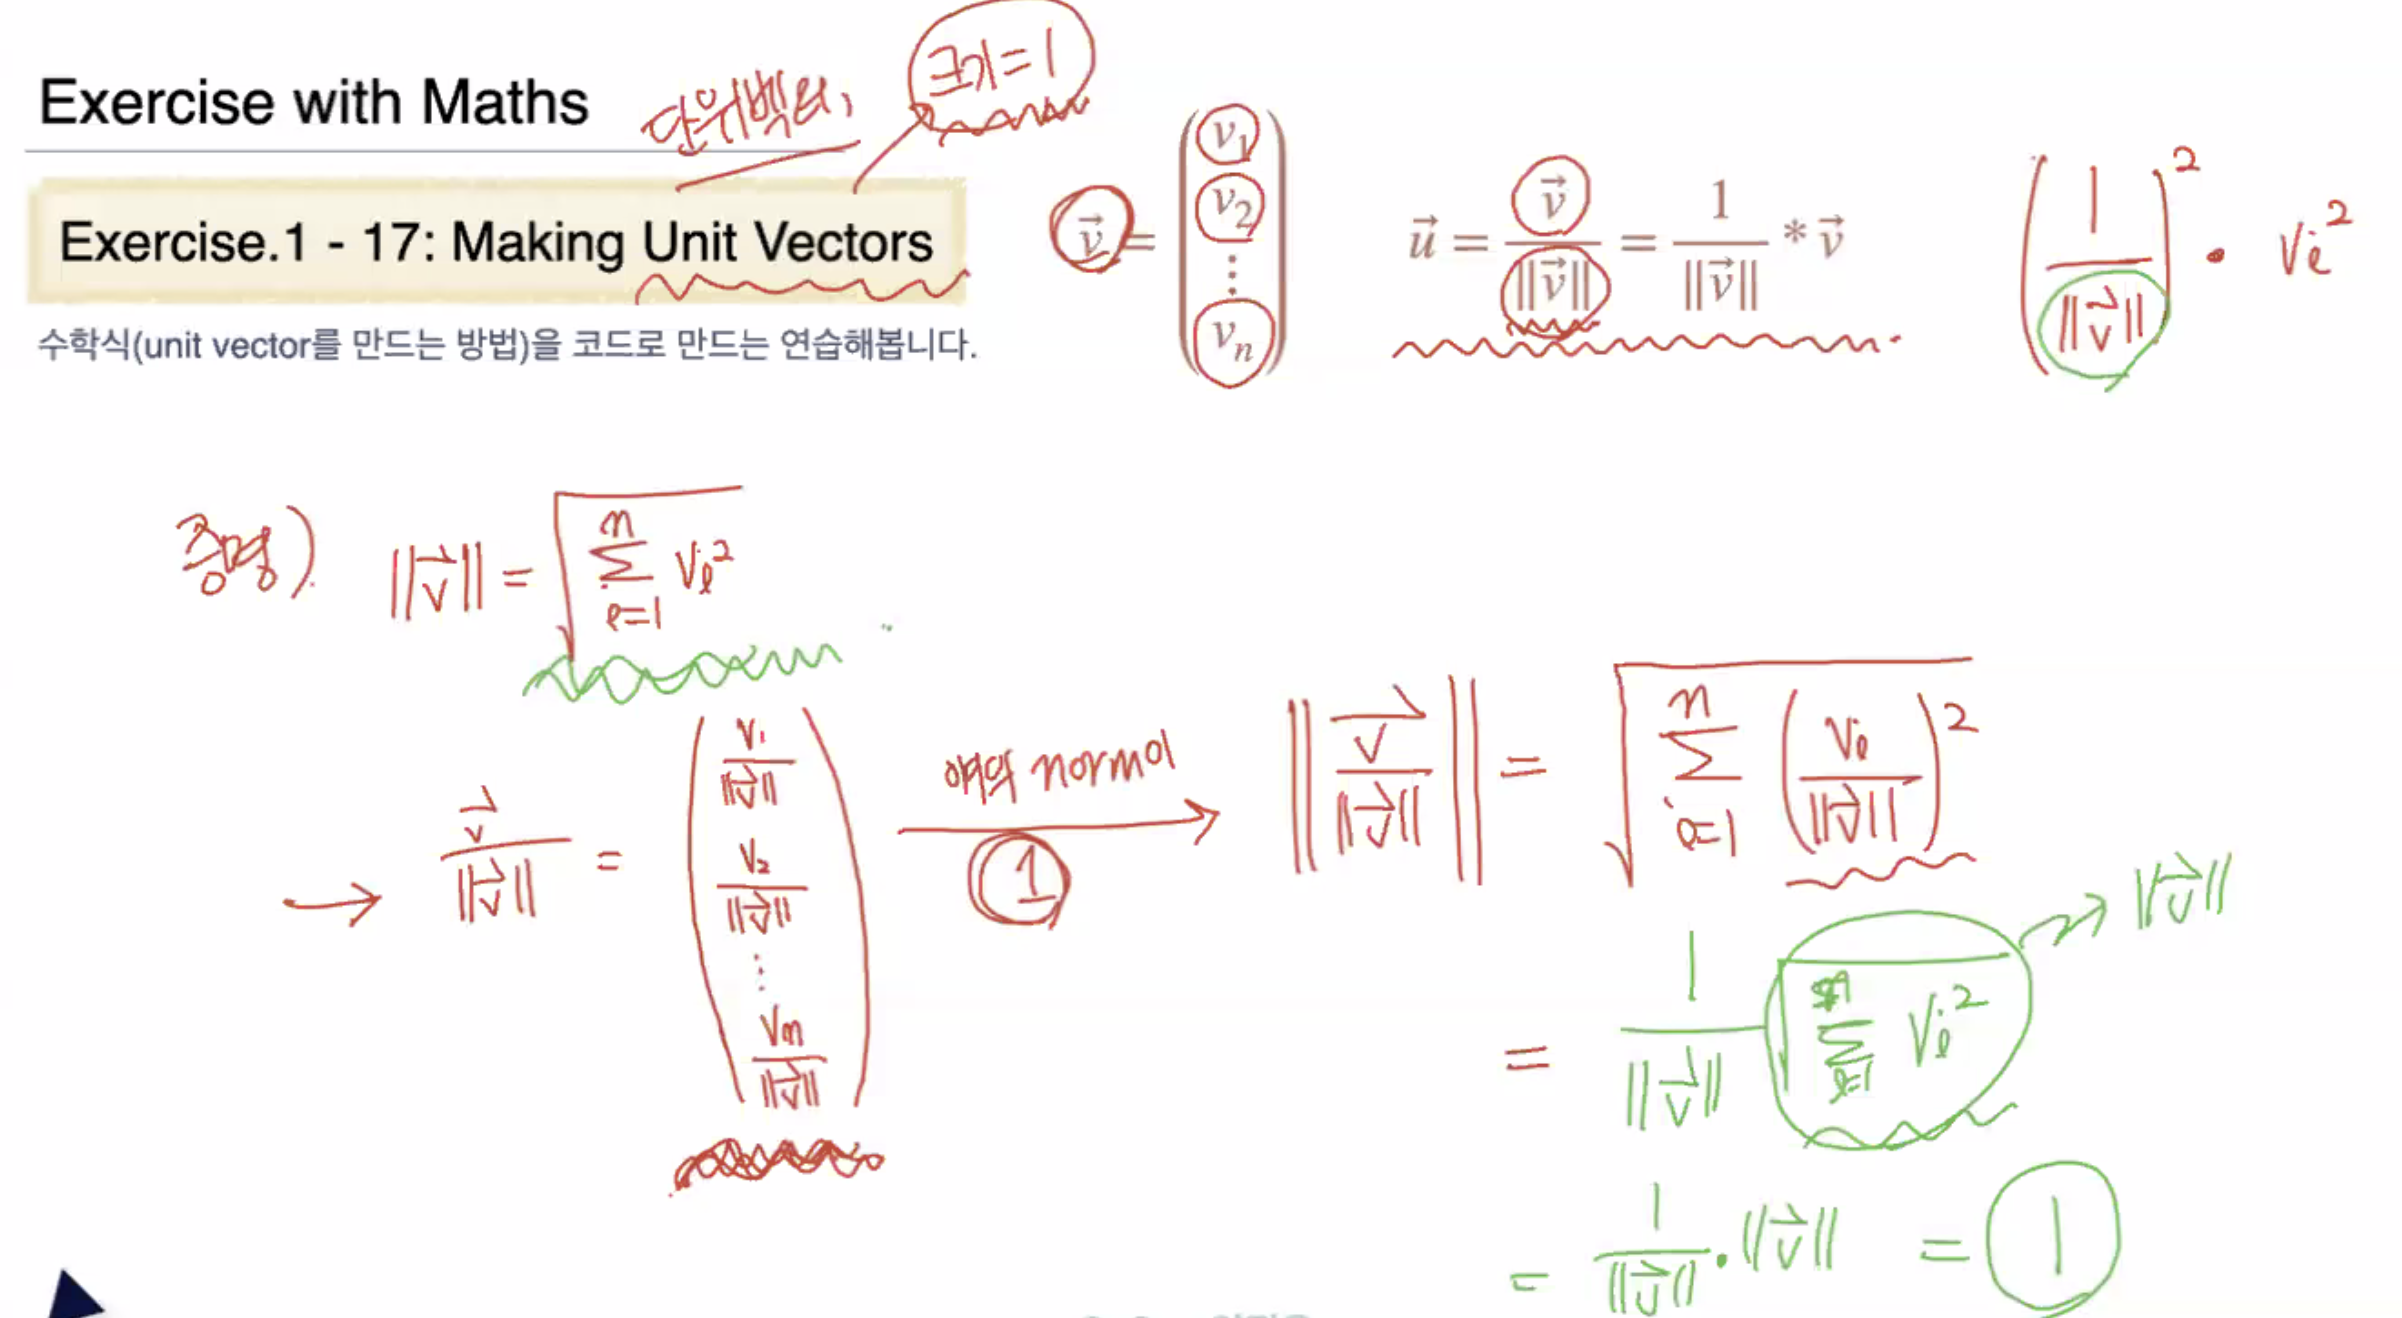 Exercise with Maths
단위벡터,
크기=1
Exercise.1 - 17: Making Unit Vectors
수학식(unit vector를 만드는 방법)을 코드로 만드는 연습해봅니다.
v⃗ = (v₁ v₂ ⋮ vₙ)
u⃗ = v⃗ / ||v⃗|| = 1 / ||v⃗|| * v⃗
(1 / ||v⃗||)² · Vi²
증명) ||v⃗|| = √(Σ_{i=1}^{n} Vi²)
→ v⃗ / ||v⃗|| = (V₁ / ||v⃗|| V₂ / ||v⃗|| ⋮ Vn / ||v⃗||)
normal
1
|| v⃗ / ||v⃗|| || = √(Σ_{i=1}^{n} (Vi / ||v⃗||)²)
= 1 / ||v⃗|| √(Σ_{i=1}^{n} Vi²) → ||v⃗||
= 1 / ||v⃗|| · ||v⃗|| = 1